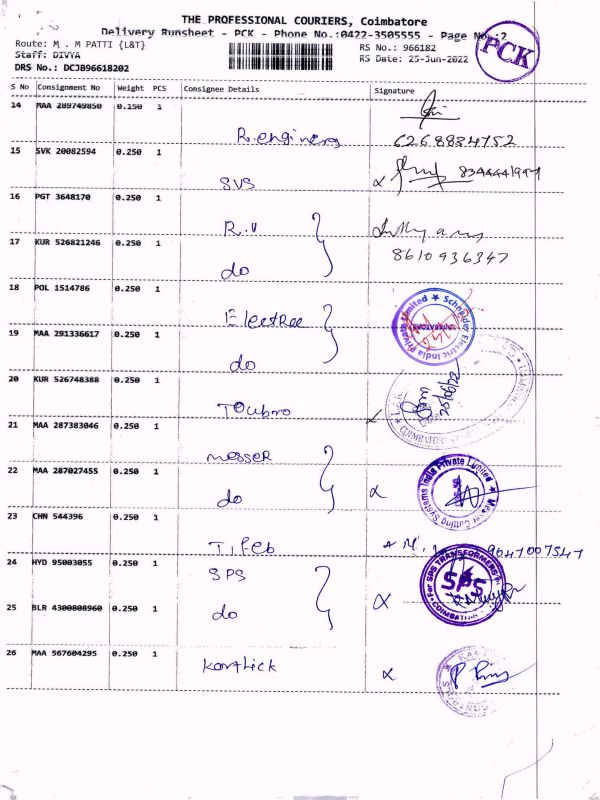 THE PROFESSIONAL COURIERS, Coimbatore
Delivery Runsheet - PCK - Phone No.:0422-3505555 - Page No.:2
Route: M . M PATTI {L&T}
RS No.: 966182
Staff: DIVYA
RS Date: 25-Jun-2022
DRS No.: DCJB96618202
PCK
S No Consignment No Weight PCS Consignee Details Signature
14 MAA 289749850 0.150 1
R.engineers 6268884752
15 SVK 20082594 0.250 1
SVS 8344441997
16 PGT 3648170 0.250 1
R.V
17 KUR 526821246 0.250 1
do 8610936347
18 POL 1514786 0.250 1
Electree Schneider Electric India Private Limited
19 MAA 291336617 0.250 1
do
20 KUR 526748388 0.250 1
Toubro 25/06/22
COIMBATORE
21 MAA 287383046 0.250 1
messer
22 MAA 287027455 0.250 1
do Messer Cutting Systems India Private Limited
23 CHN 544396 0.250 1
T.I.Feb 9647007547
24 HYD 95003055 0.250 1
SPS For SPS TRANSFORMERS
SPS
COIMBATORE
25 BLR 4300808960 0.250 1
do
26 MAA 567604295 0.250 1
karthick